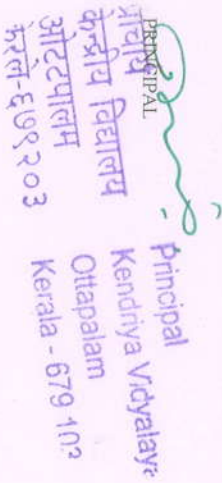 PRINCIPAL
प्राचार्य
केन्द्रीय विद्यालय
ओट्टपालम
केरल-६७९१०३
Principal
Kendriya Vidyalaya
Ottapalam
Kerala - 679 103